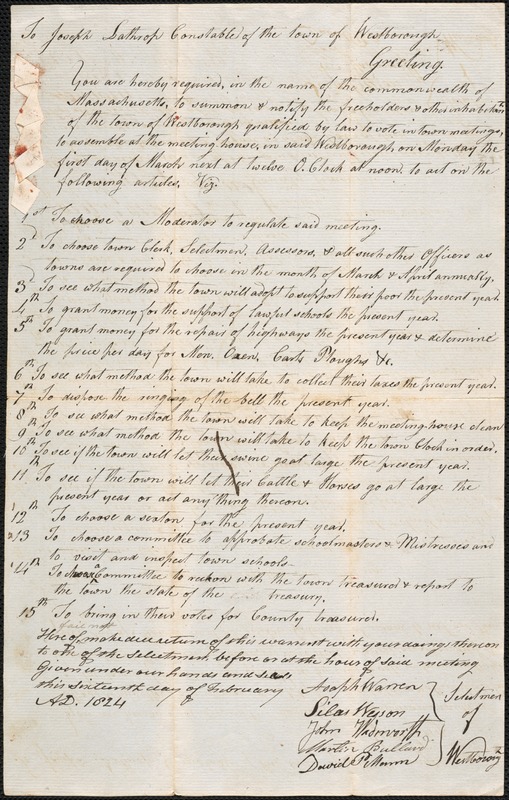 To Joseph Lathrop Constable of the town of Westborough
Greeting
You are hereby required, in the name of the commonwealth of
Massachusetts, to summon & notify the freeholders & other inhabitants
of the town of Westborough qualified by law to vote in town meetings,
to assemble at the meeting house, in said Westborough, on Monday the
first day of March next at twelve O. Clock at noon, to act on the
following articles, Viz.
1st To choose a Moderator to regulate said meeting.
2d To choose town Clerk, Selectmen, Assessors, & all such other Officers as
towns are required to choose in the month of March & April annually.
3d To see what method the town will adopt to support their poor the present year
4th To grant money for the support of lawful schools the present year.
5th To grant money for the repair of highways the present year & determine
the price per day for Men, Oxen, Carts Ploughs &c.
6th To see what method the town will take to collect their taxes the present year.
7th To dispose the ringing of the bell the present year.
8th To see what method the town will take to keep the meeting-house clean
9th To see what method the town will take to keep the town Clock in order.
10th To see if the town will let their swine go at large the present year.
11th To see if the town will let their Cattle & Horses go at large the
present year or act any thing thereon.
12th To choose a sexton for the present year.
13 To choose a committee to approbate schoolmasters & Mistresses and
to visit and inspect town schools
14th To choose a Committee to reckon with the town treasurer & report to
the town the state of the treasury.
15th To bring in their votes for County treasurer.
fail not
Hereof make due return of this warrent with your doings thereon
to one of the Selectmen before or at the hour of said meeting
Given under our hands and seals
this sixteenth day of February
A.D. 1824
Asaph Warren
Silas Wesson
John Wadsworth
Martin Bullard
David P. Mann
Selectmen
of
Westborough